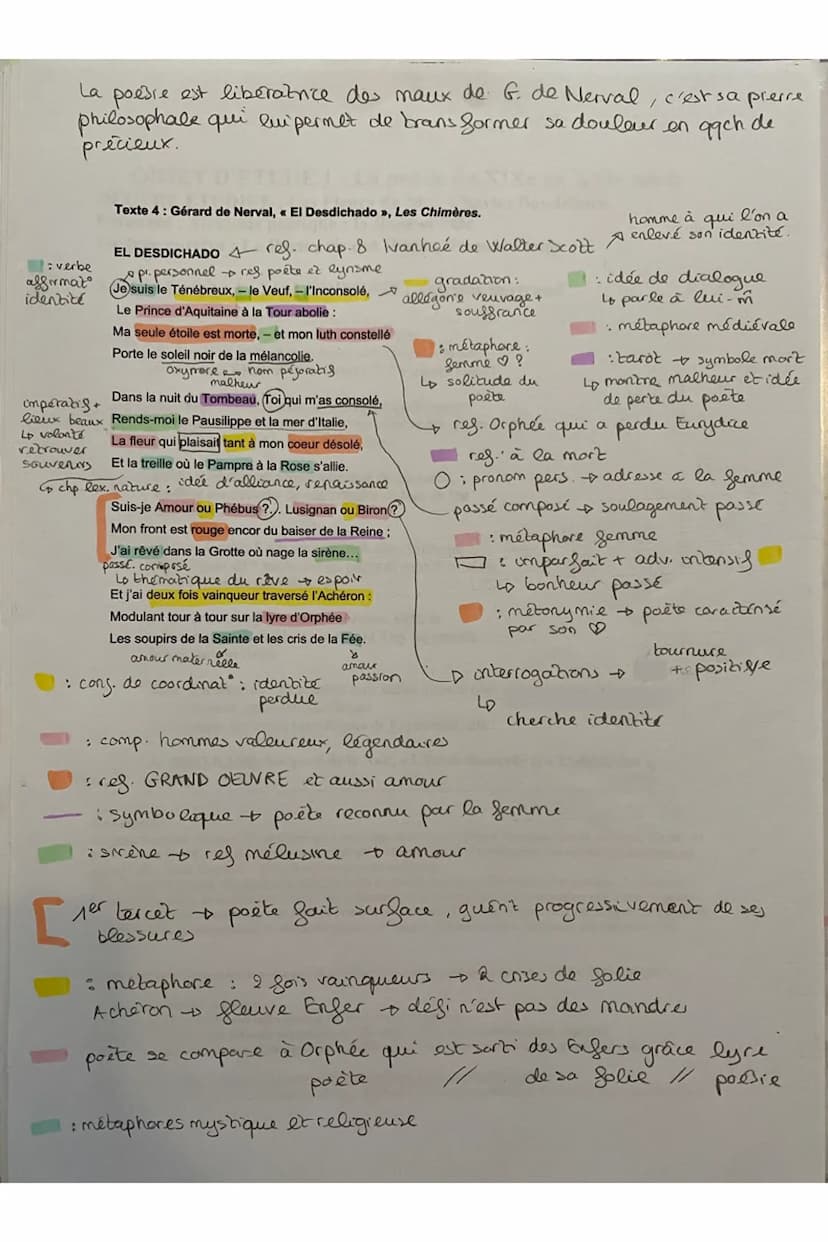 La poésie est libératrice des maux de G. de Nerval, c'est sa pierre
philosophale qui lui permet de transformer sa douleur en qqch de
précieux.
Texte 4 : Gérard de Nerval, « El Desdichado », Les Chimères.
homme à qui l'on a
enlevé son identité.
EL DESDICHADO ← ref. chap. 8 Ivanhoé de Walter Scott
: verbe
affirmat°
identité
pr. personnel → ref. poète et lyrisme
Je suis le Ténébreux, – le Veuf, – l'Inconsolé,
Le Prince d'Aquitaine à la Tour abolie :
Ma seule étoile est morte, – et mon luth constellé
Porte le soleil noir de la mélancolie.
oxymore ↔ nom péjoratif
malheur
gradation :
allégorie veuvage +
souffrance
: métaphore :
femme ♡ ?
↳ solitude du
poète
: idée de dialogue
↳ parle à lui-m̂
: métaphore médiévale
: tarot → symbole mort
↳ montre malheur et idée
de perte du poète
Dans la nuit du Tombeau, Toi qui m'as consolé,
Rends-moi le Pausilippe et la mer d'Italie,
La fleur qui plaisait tant à mon coeur désolé,
Et la treille où le Pampre à la Rose s'allie.
impératif +
lieux beaux
↳ volonté
retrouver
souvenirs
↳ chp lex. nature : idée d'alliance, renaissance
→ ref. Orphée qui a perdu Eurydice
: ref. à la mort
: pronom pers. → adresse à la femme
passé composé → soulagement passé
: métaphore femme
: imparfait + adv. intensif
↳ bonheur passé
: métonymie → poète caractérisé
par son ♡
Suis-je Amour ou Phébus ?. Lusignan ou Biron ?
Mon front est rouge encor du baiser de la Reine ;
J'ai rêvé dans la Grotte où nage la sirène...
passé. composé
↳ thématique du rêve → espoir
Et j'ai deux fois vainqueur traversé l'Achéron :
Modulant tour à tour sur la lyre d'Orphée
Les soupirs de la Sainte et les cris de la Fée.
amour maternelle
amour
passion
→ interrogations → tournure
+ positive
↳
cherche identité
: conj. de coordinat° : identité
perdue
: comp. hommes valeureux, légendaires
: ref. GRAND OEUVRE et aussi amour
: symbolique → poète reconnu par la femme
: sirène → ref mélusine → amour
1er tercet → poète fait surface, guérit progressivement de ses
blessures
: métaphore : 2 fois vainqueurs → 2 crises de folie
Achéron → fleuve Enfer → défi n'est pas des moindres
poète se compare à Orphée qui est sorti des Enfers grâce lyre
poète // de sa folie // poésie
: métaphores mystique et religieuse